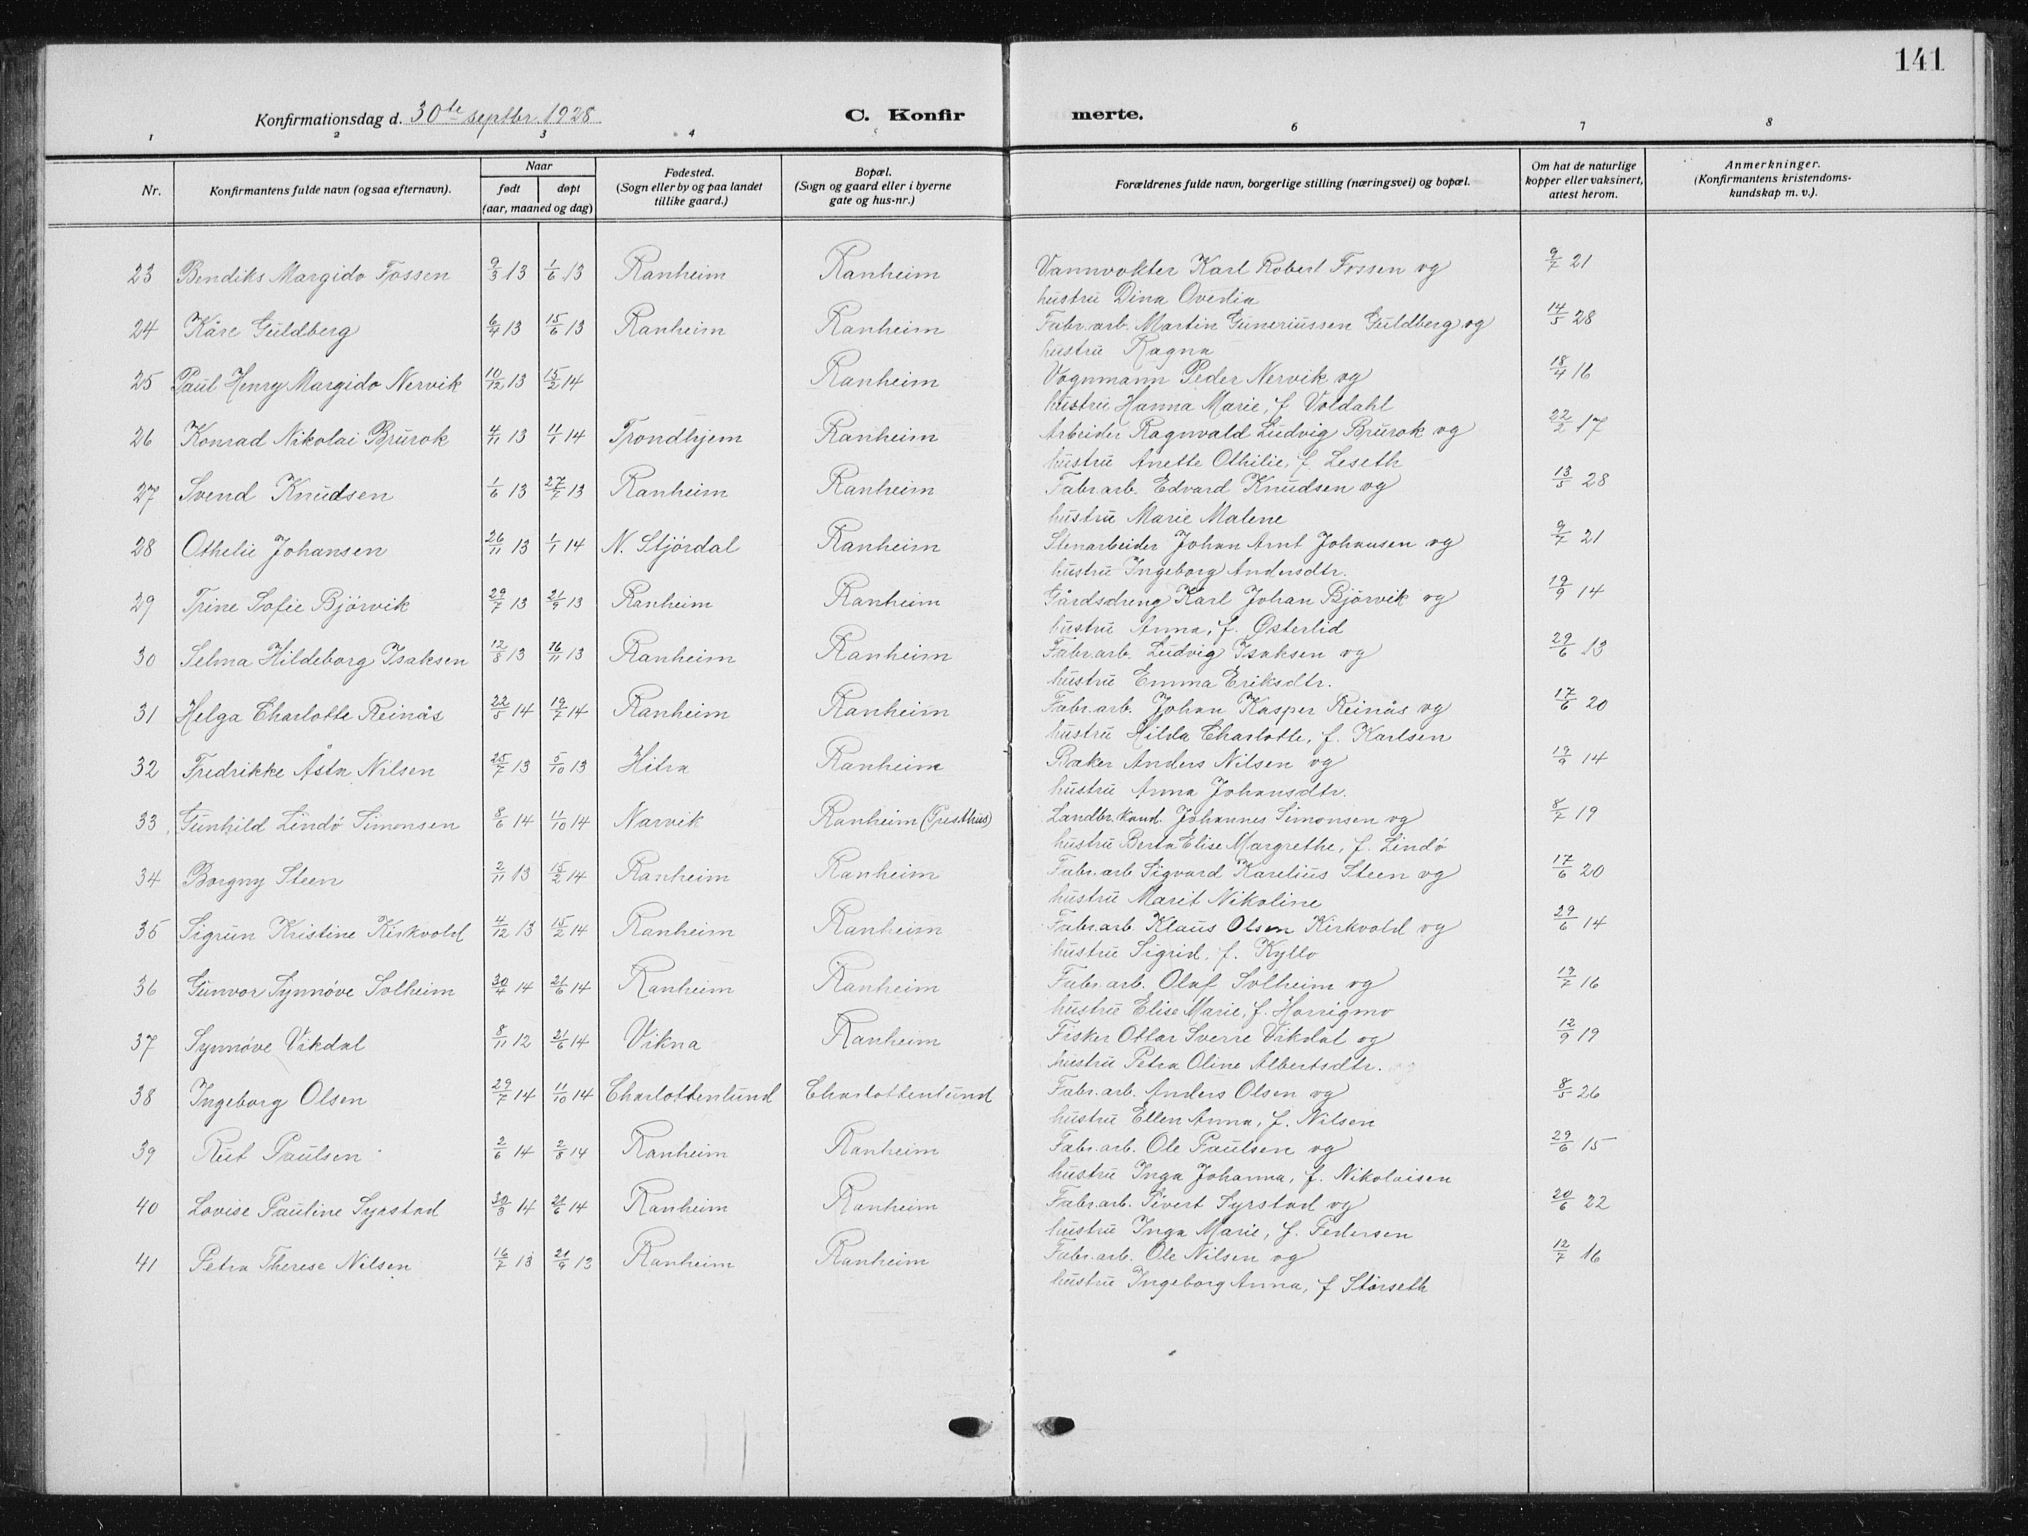 141
Konfirmationsdag d. 30te septbr. 1928 C. Konfir merte.
1 2 3 4 5 6 7 8
Nr. Konfirmantens fulde navn (ogsaa efternavn). Naar født døpt (aar, maaned og dag) Fødested. (Sogn eller by og paa landet tillike gaard.) Bopæl. (Sogn og gaard eller i byerne gate og hus-nr.) Forældrenes fulde navn, borgerlige stilling (næringsvei) og bopæl. Om hat de naturlige kopper eller vaksinert, attest herom. Anmerkninger. (Konfirmantens kristendoms-kundskap m. v.).
23 Bendiks Margido Fossen 9/3 13 1/6 13 Ranheim Ranheim Vannvokter Karl Robert Fossen og 9/7 21
hustru Dina Ovedia
24 Kåre Guldberg 6/4 13 15/6 13 Ranheim Ranheim Fabr.arb. Martin Guneriussen Guldberg og 14/5 28
hustru Ragna
25 Paul Henry Margido Nervik 10/12 13 15/2 14 Ranheim Vognmann Peder Nervik og 18/4 16
hustru Hanna Marie, f. Voldahl
26 Konrad Nikolai Brurok 4/11 13 11/1 14 Trondhjem Ranheim Arbeider Ragnvald Ludvig Brurok og 22/2 17
hustru Anette Othilie, f. Leseth
27 Svend Knudsen 1/6 13 27/7 13 Ranheim Ranheim Fabr.arb. Edvard Knudsen og 13/5 28
hustru Marie Malene
28 Othelie Johansen 26/11 13 1/1 14 N. Stjördal Ranheim Stenarbeider Johan Arnt Johansen og 9/7 21
hustru Ingeborg Andersdtr.
29 Trine Sofie Björvik 29/7 13 21/9 13 Ranheim Ranheim Gårdsdreng Karl Johan Björvik og 19/9 14
hustru Anna, f. Østerlid
30 Selma Hildeborg Isaksen 12/8 13 16/11 13 Ranheim Ranheim Fabr.arb. Ludvig Isaksen og 29/6 13
hustru Emma Eriksdtr.
31 Helga Charlotte Reinås 22/5 14 19/7 14 Ranheim Ranheim Fabr.arb. Johan Kasper Reinås og 17/6 20
hustru Hilda Charlotte, f. Karlsen
32 Fredrikke Åsta Nilsen 25/7 13 5/10 13 Hitra Ranheim Baker Anders Nilsen og 19/9 14
hustru Anna Johansdtr.
33 Gunhild Lindö Simonsen 8/6 14 11/10 14 Narvik Ranheim (Presthus) Landbr.kand. Johannes Simonsen og 8/7 19
hustru Berta Elise Margrethe, f. Lindö
34 Borgny Steen 2/11 13 15/2 14 Ranheim Ranheim Fabr.arb Sigvard Karelius Steen og 17/6 20
hustru Marit Nikoline
35 Sigrun Kristine Kirkvold 4/12 13 15/2 14 Ranheim Ranheim Fabr.arb. Klaus Olsen Kirkvold og 29/6 14
hustru Sigrid, f. Kyllo
36 Gunvor Synnöve Solheim 30/4 14 21/6 14 Ranheim Ranheim Fabr.arb. Olaf Solheim og 19/7 16
hustru Elise Marie, f. Horrigmo
37 Synnöve Vikdal 8/11 12 21/6 14 Vikna Ranheim Fisker Ottar Sverre Vikdal og 12/9 19
hustru Petra Oline Albertsdtr.
38 Ingeborg Olsen 29/7 14 11/10 14 Charlottenlund Charlottenlund Fabr.arb. Anders Olsen og 8/5 26
hustru Ellen Anna, f. Nilsen
39 Rut Paulsen 2/6 14 2/8 14 Ranheim Ranheim Fabr.arb. Ole Paulsen og 29/6 15
hustru Inga Johanna, f. Nikolaisen
40 Lovise Pauline Syrstad 30/3 14 21/6 14 Ranheim Ranheim Fabr.arb. Sivert Syrstad og 20/6 22
hustru Inga Marie, f. Pedersen
41 Petra Therese Nilsen 16/7 13 21/9 13 Ranheim Ranheim Fabr.arb. Ole Nilsen og 12/7 16
hustru Ingeborg Anna, f Störseth